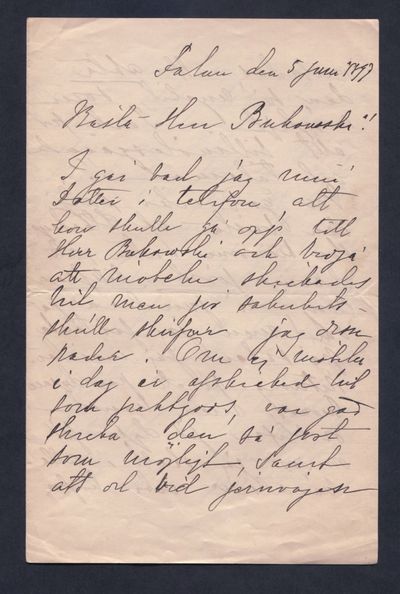 Falun den 5 juni 1897
Bästa Herr Bukowski!
I går bad jag min
Syster i telefon att
hon skulle gå opp till
Herr Bukowski och bedja
att möbeln skickades
men för säkerhets
skull skrifver jag dessa
rader. Om ej möbeln
i dag är afskickad
som fraktgods, var god
skicka den så fort
som möjligt, samt
att vid jernvägen